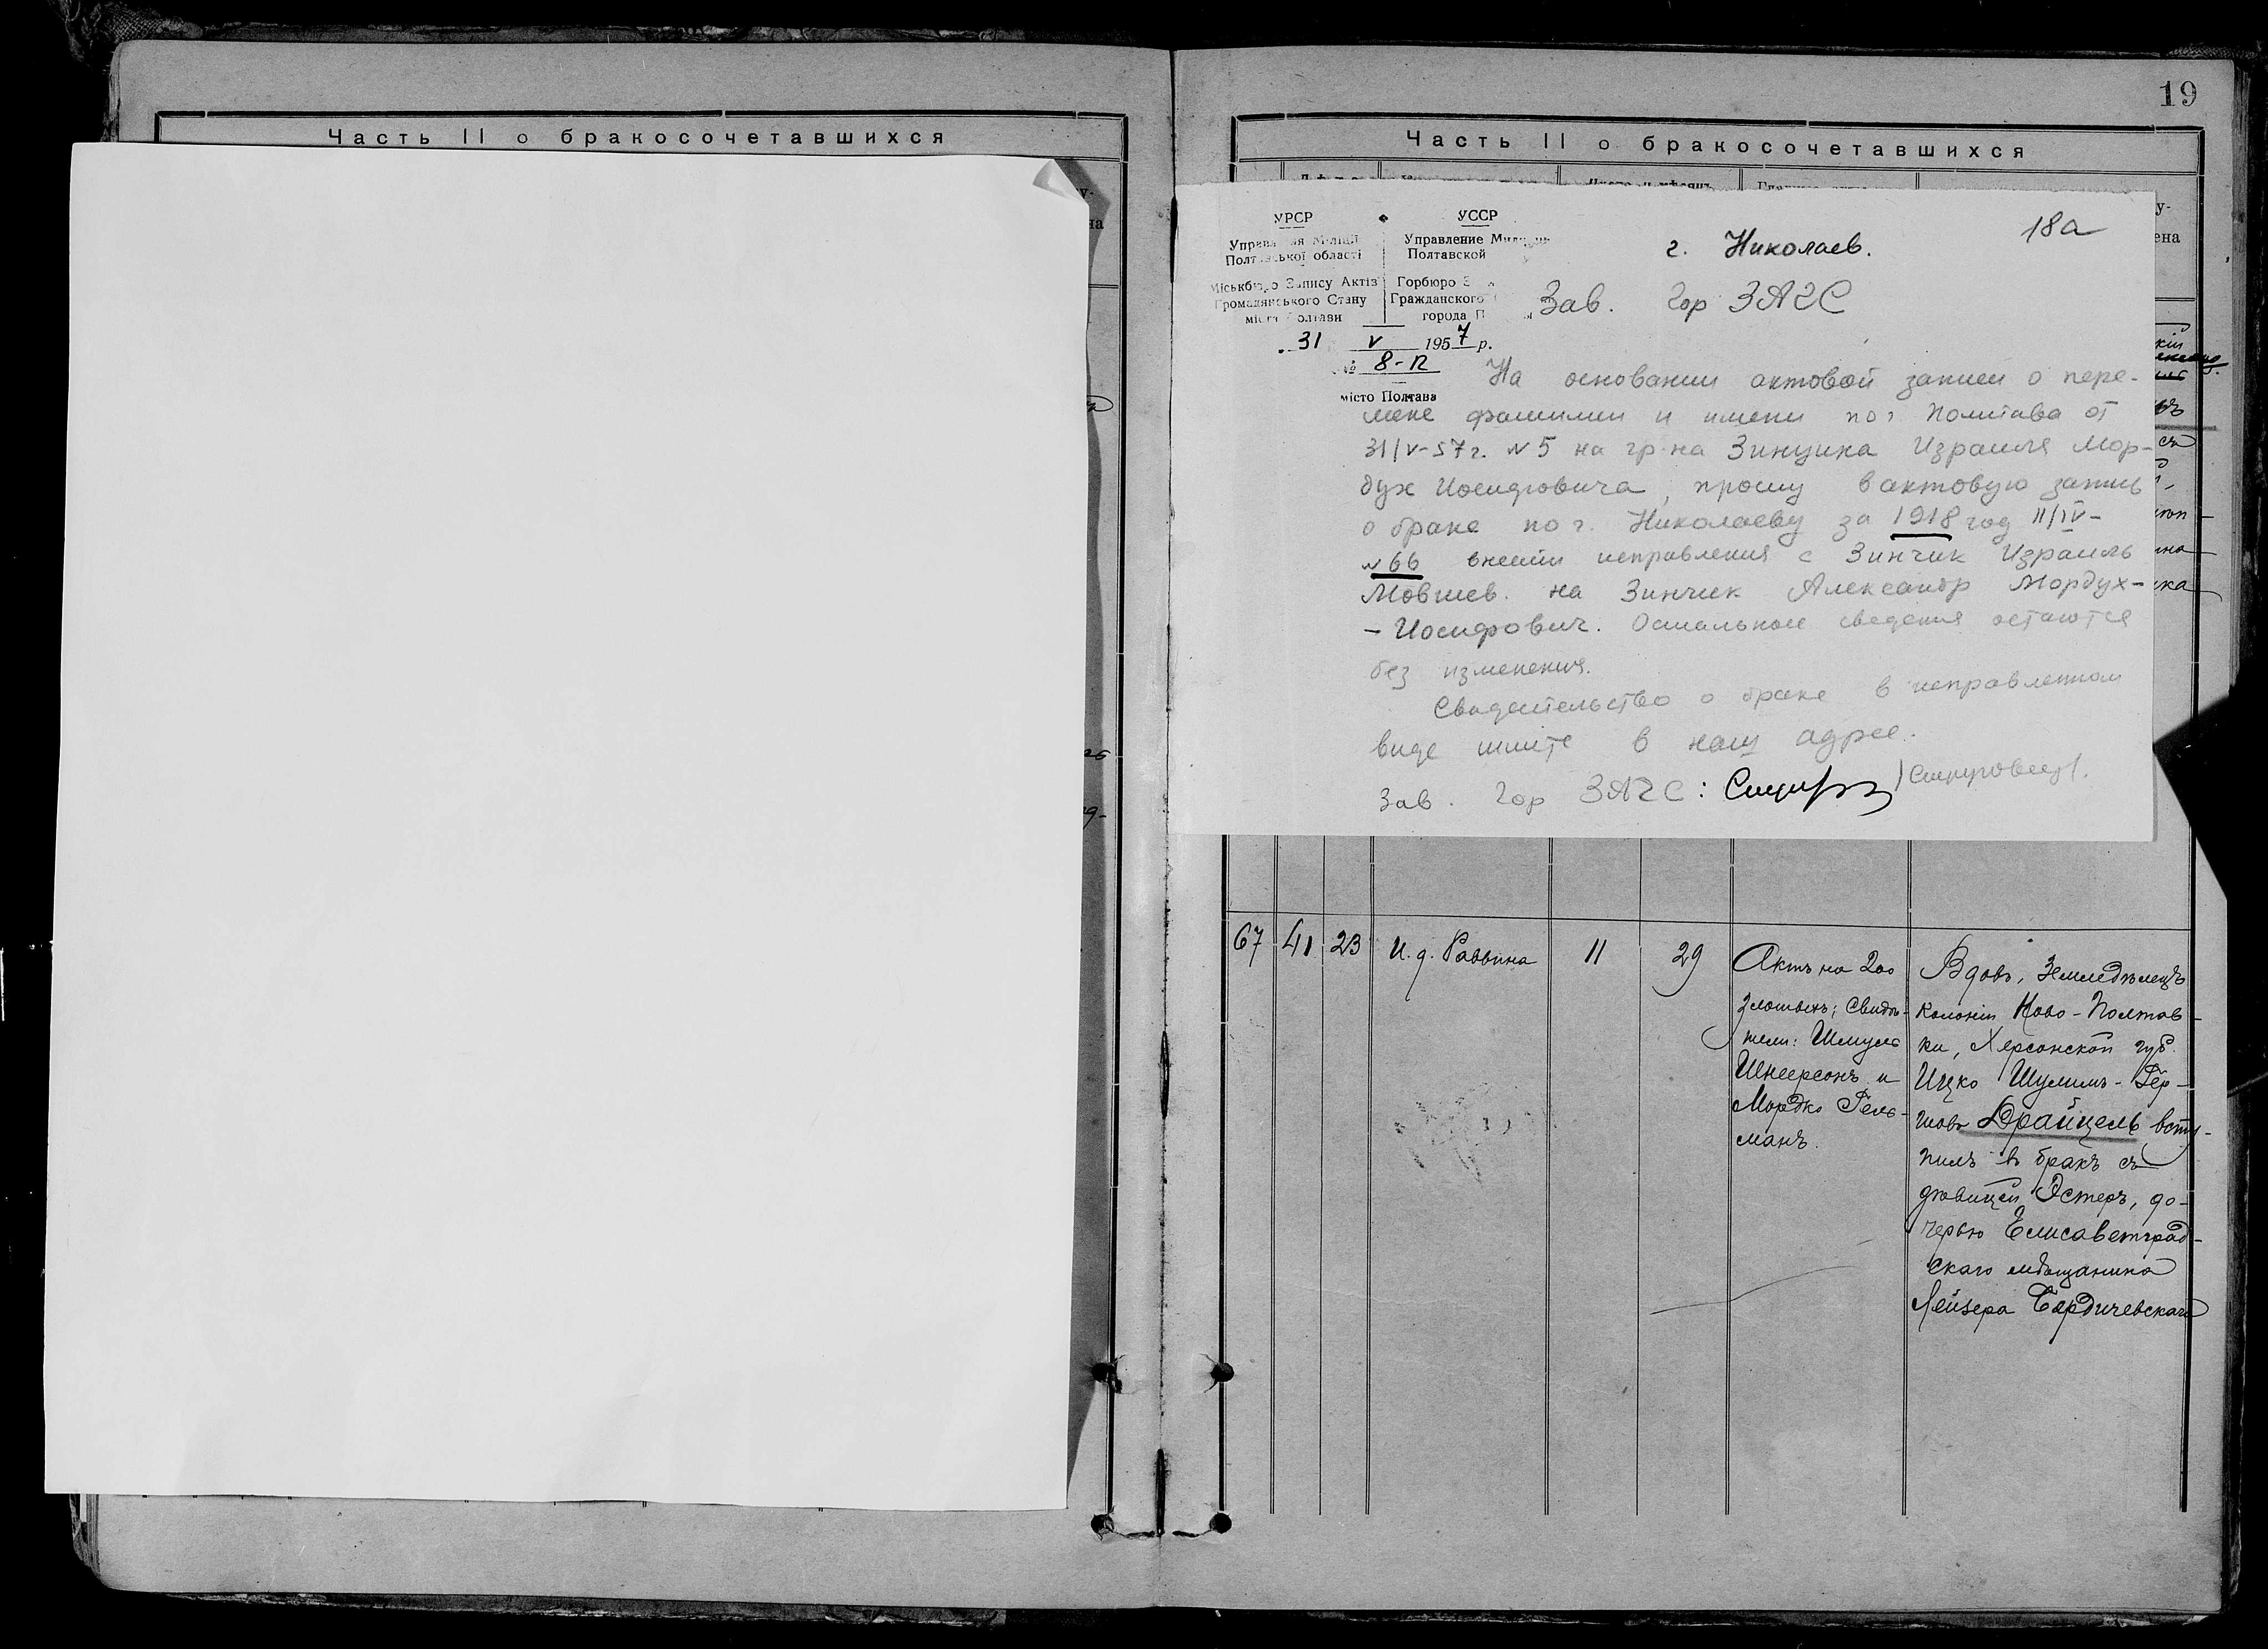 19
Часть II о бракосочетавшихся
Часть II о бракосочетавшихся
18а
УРСР
Полтавської області
Міськбюро Запису Актів
Громадянського Стану
міста Полтави
УССР
Управление
Полтавской
Горбюро
Гражданского
города
31 V 1957 р.
№ 8-12
місто Полтава
г. Николаев.
Зав. Гор ЗАГС
На основании актовой записи о пере-
мене фамилии и имени по г. Полтава от
31/V-57 г. N 5 на гр-на Зинчика Израиля Мор-
дух Иосифовича, прошу в актовую запись
о браке по г. Николаеву за 1918 год 11/IV-
N66 внести исправления с Зинчик Израиль
Мовшев. на Зинчик Александр Мордух-
- Иосифович. Остальные сведения остаются
без изменения.
Свидетельство о браке в исправленном
виде шлите в наш адрес.
Зав. Гор ЗАГС:
67 41 23 И. д. Раввина 11 29
Актъ на 200
злотыхъ; Свидѣ-
тели: Шмуль
Шнеерсонъ и
Мордко Гель-
манъ.
Вдовъ, Земледѣлецъ
колоніи Ново-Полтав-
ки, Херсонской губ.
Ицко Шулимъ-Гер-
шовъ Драйцель всту-
пилъ въ бракъ съ
дѣвицей Эстеръ, до-
черью Елисаветград-
скаго мѣщанина
Лейзера Бердичевскаго